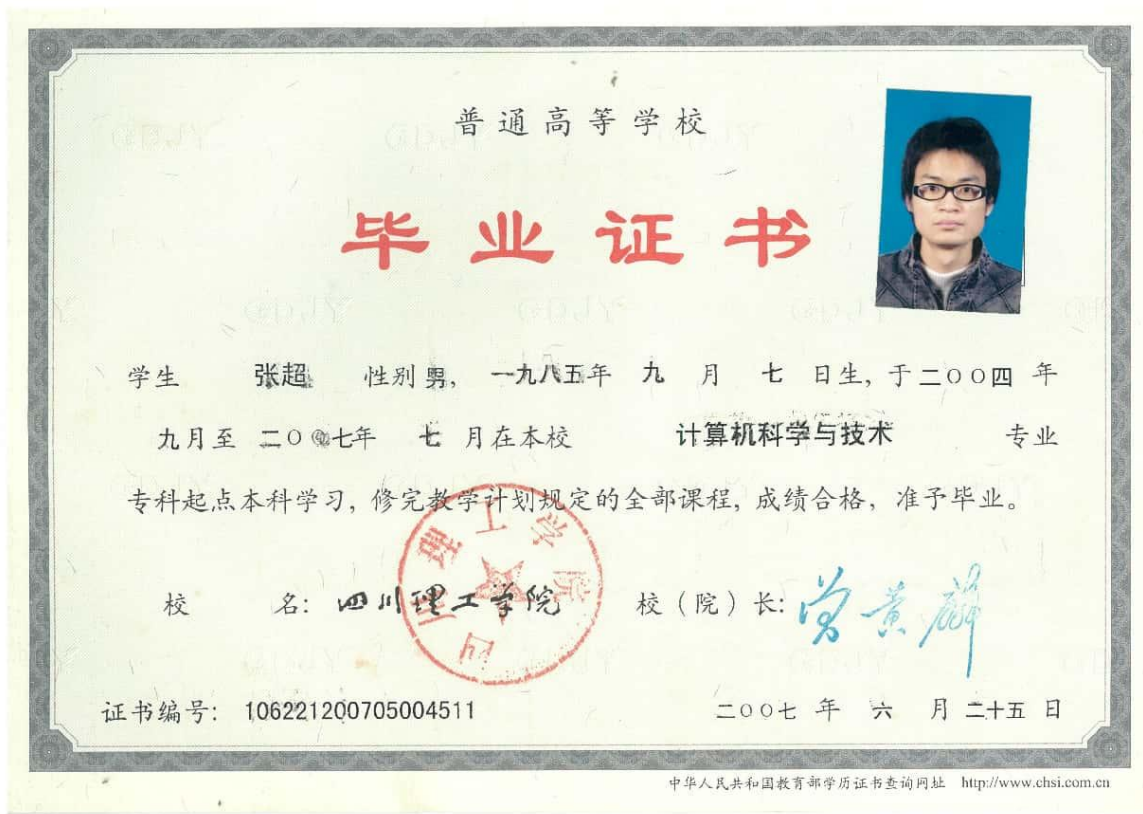 普通高等学校
毕业证书
学生 张超 性别 男, 一九八五年 九 月 七 日生, 于二〇〇四 年
九月至 二〇〇七年 七 月在本校 计算机科学与技术 专业
专科起点本科学习, 修完教学计划规定的全部课程, 成绩合格, 准予毕业。
四川理工学院
校 名: 四川理工学院 校（院）长: 曾黄麟
证书编号: 106221200705004511 二〇〇七 年 六 月 二十五 日
中华人民共和国教育部学历证书查询网址 http://www.chsi.com.cn